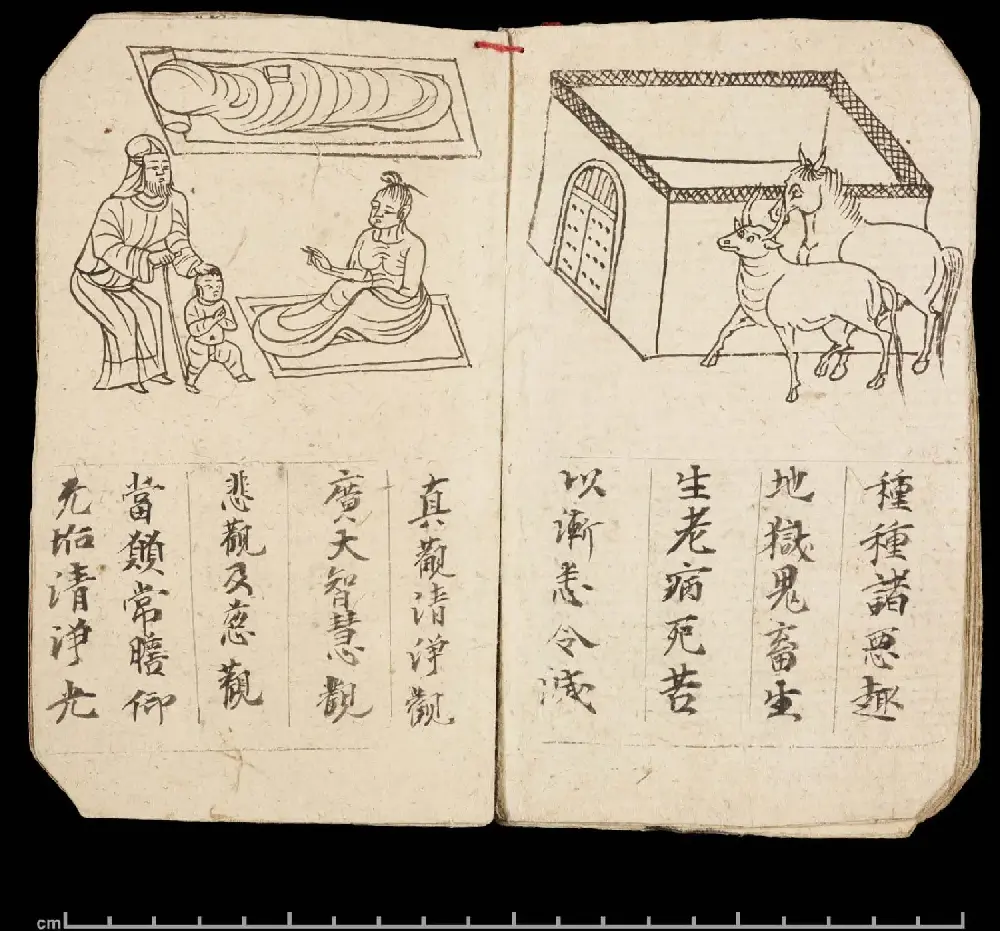 種種諸悪趣
地獄鬼畜生
生老病死苦
以漸悉令滅
真觀清淨觀
廣大智慧觀
悲觀及慈觀
當願常瞻仰
无垢清淨光
cm